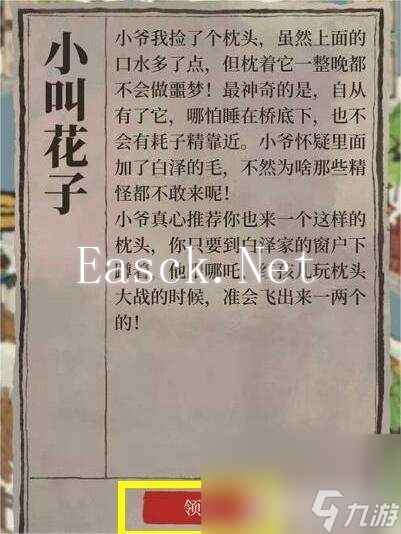 小叫花子
小爷我捡了个枕头，虽然上面的
口水多了点，但枕着它一整晚都
不会做噩梦！最神奇的是，自从
有了它，哪怕睡在桥底下，也不
会有耗子精靠近。小爷怀疑里面
加了白泽的毛，不然为啥那些精
怪都不敢来呢！
小爷真心推荐你也来一个这样的
枕头，你只要到白泽家的窗户下
他 哪吒、 孩儿玩枕头
大战的时候，准会飞出来一两个
的！
Easck.Net
领
九游